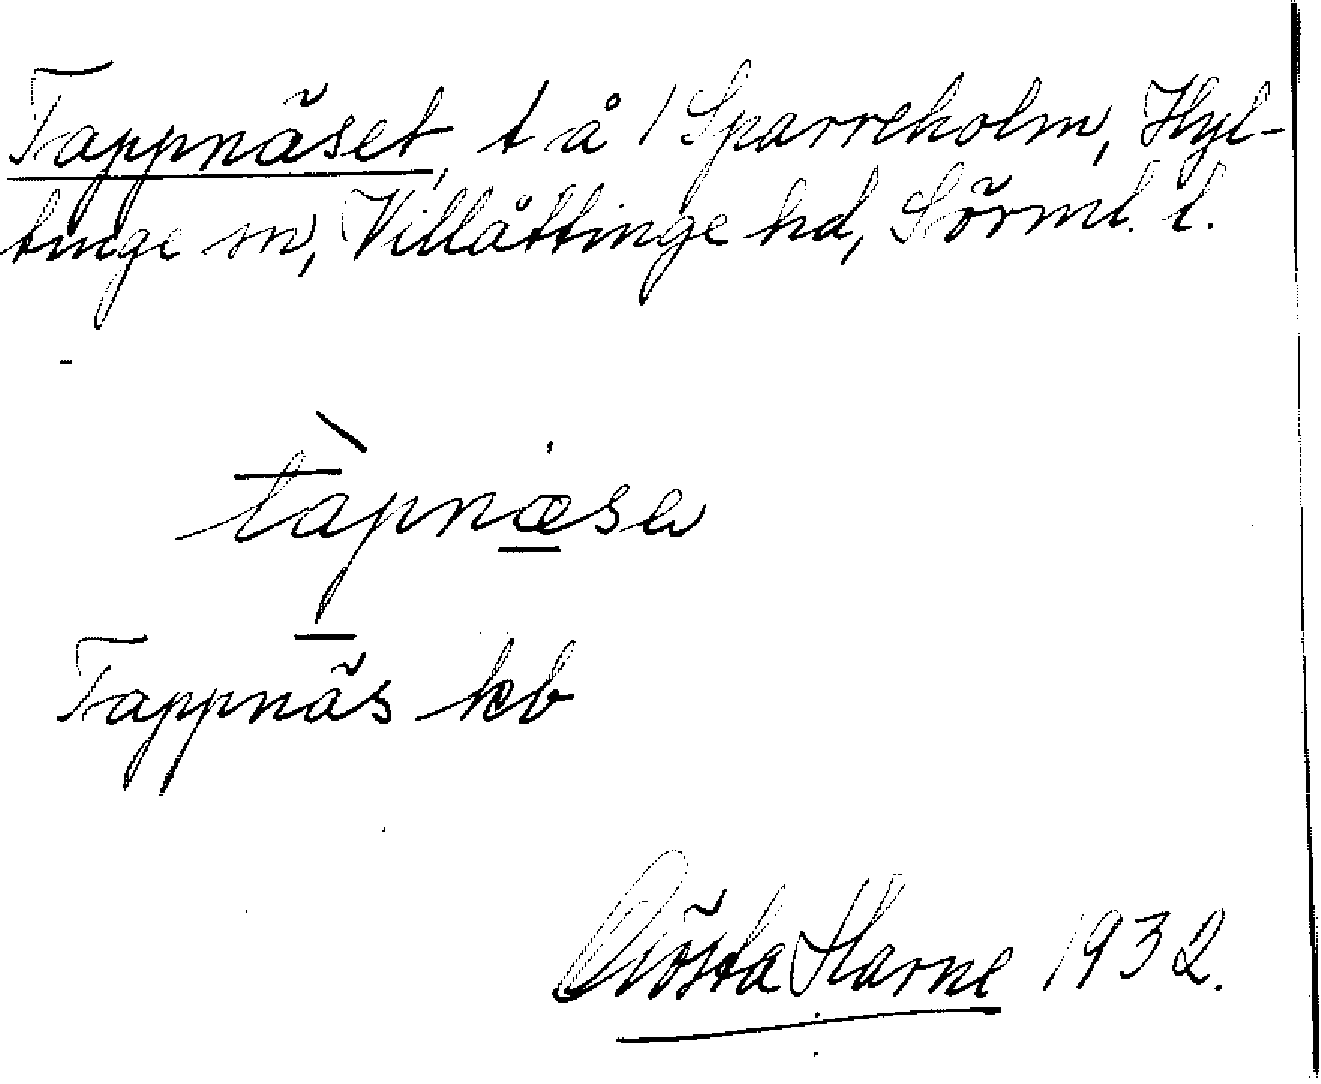 Tappnäset, t å 1 Sparreholm, Hyl-
tinge sn, Villåttinge hd, Sörml. l.
tàpnæse
Tappnäs kb
Gösta Harne 1932.